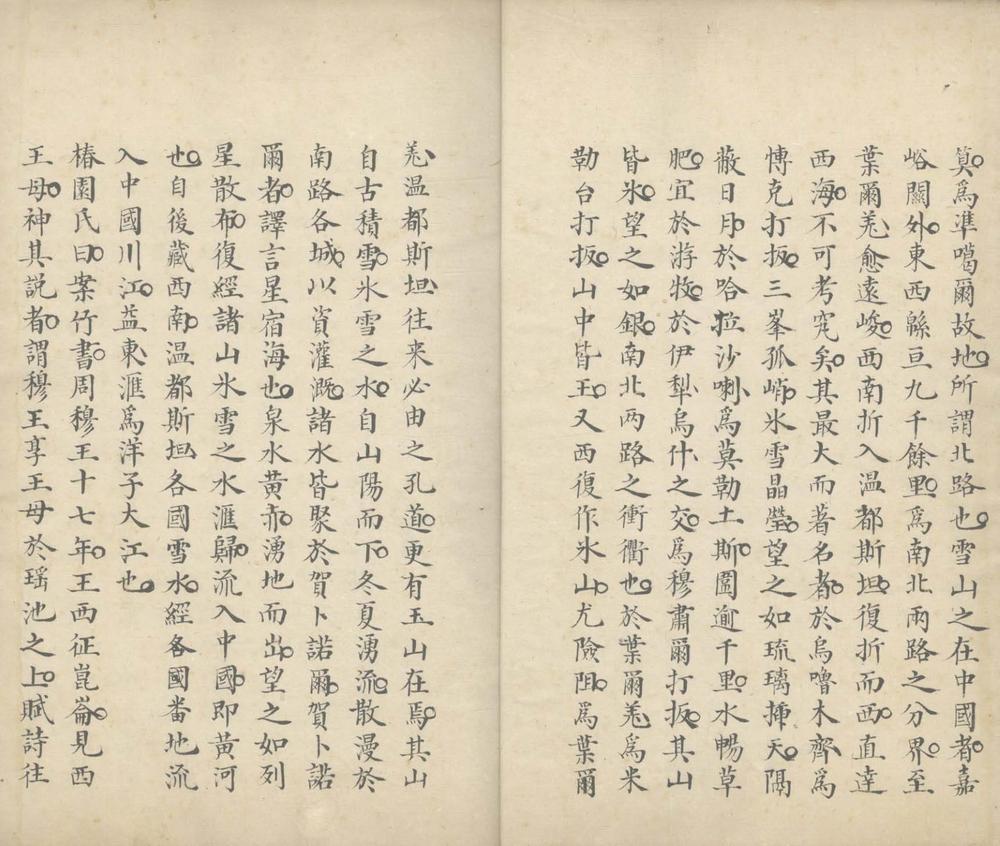 算為準噶爾故地所謂北路也雪山之在中國者嘉
峪關外東西緜亘九千餘里為南北兩路之分界至
葉爾羌愈遠峻西南折入温都斯坦復折而西直達
西海不可考究矣其最大而著名者於烏嚕木齊為
博克打扳三峯孤峭氷雪晶瑩望之如琉璃揷天隔
蔽日月於哈拉沙喇為莫勒土斯圖逾千里水暢草
肥宜於游牧於伊犁烏什之交為穆肅爾打扳其山
皆氷望之如銀南北两路之衝衢也於葉爾羌為米
勒台打扳山中皆玉又西復作氷山尤險阻為葉爾
羌温都斯坦往来必由之孔道更有玉山在焉其山
自古積雪氷雪之水自山陽而下冬夏湧流散漫於
南路各城以資灌溉諸水皆聚於賀卜諾爾賀卜諾
爾者譯言星宿海也泉水黄赤湧地而出望之如列
星散布復經諸山氷雪之水滙歸流入中國即黄河
也自後藏西南温都斯坦各國雪水經各國畨地流
入中國川江益東滙為洋子大江也
椿園氏曰案竹書周穆王十七年王西征崑崙見西
王母神其説者謂穆王享王母於瑶池之上賦詩往